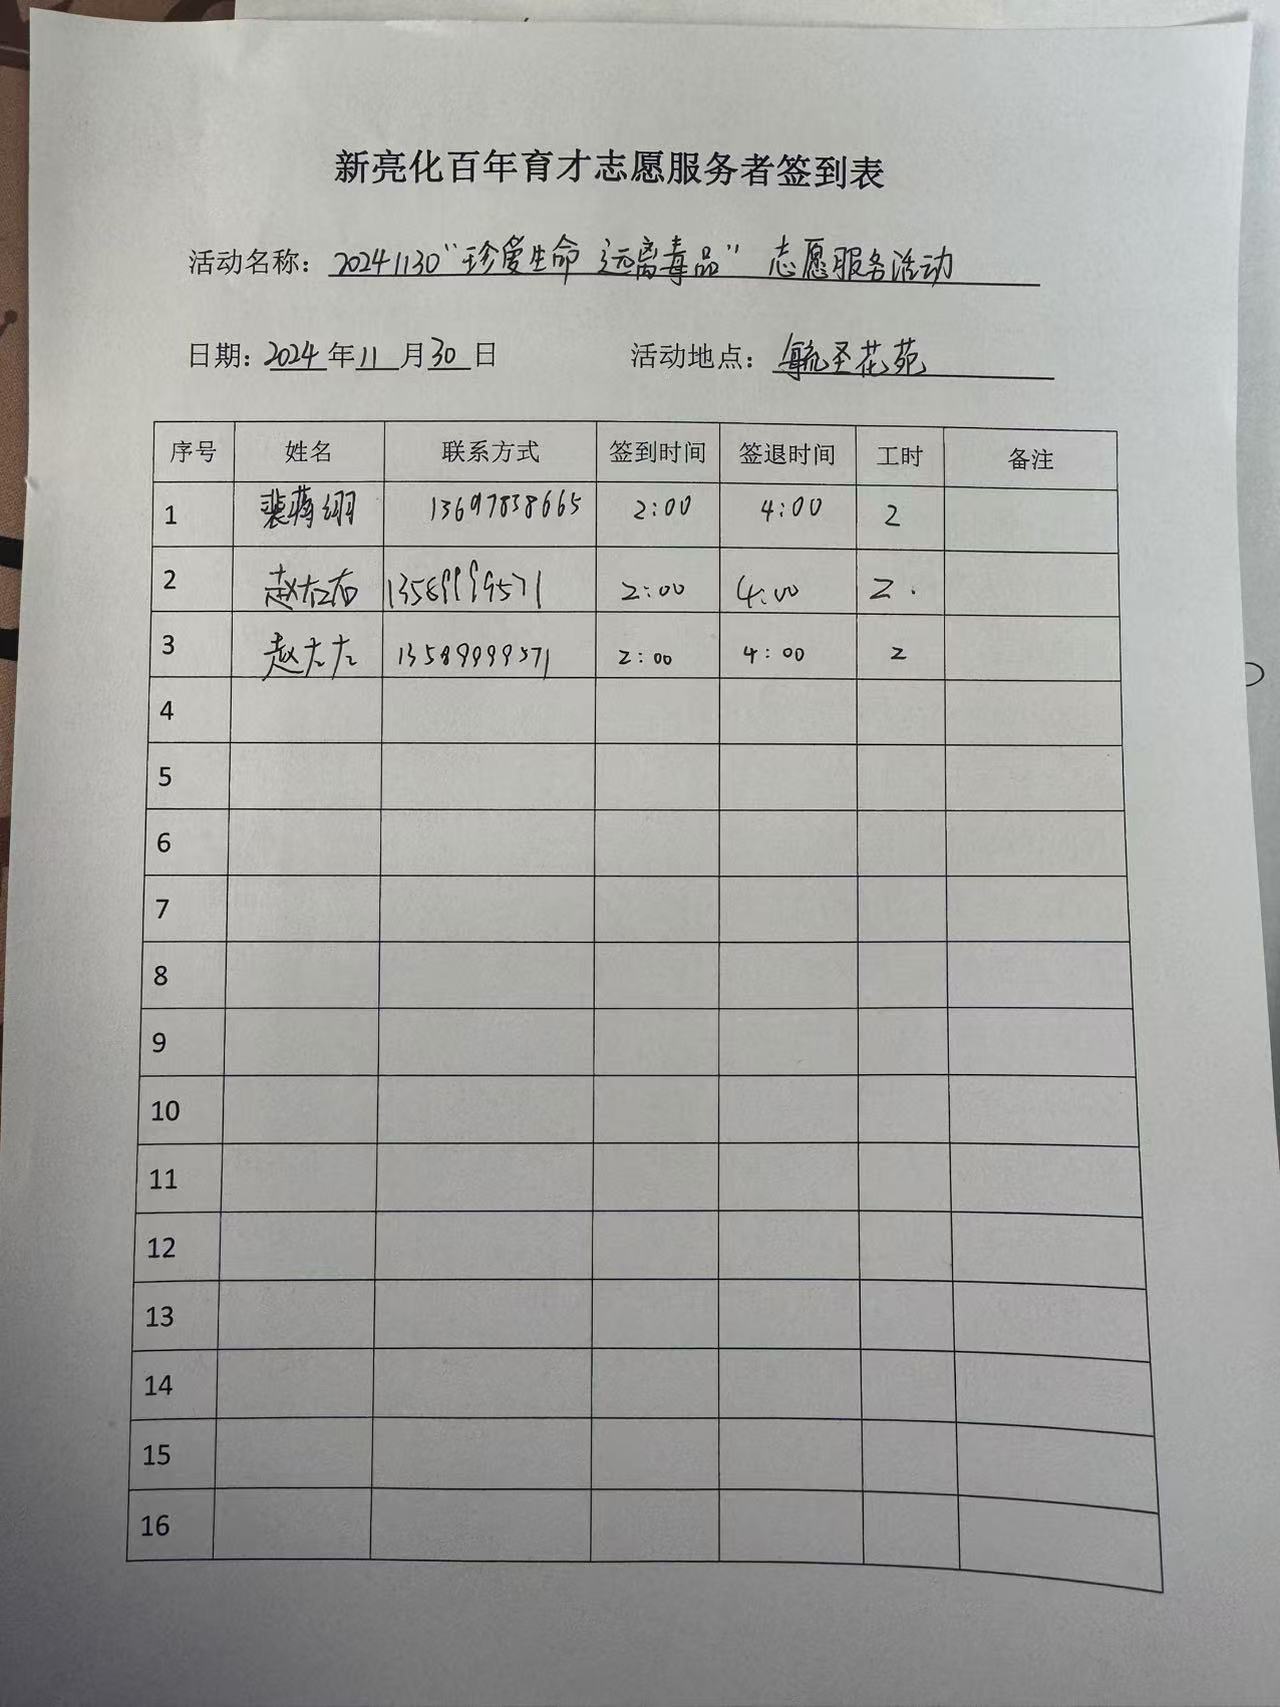 新亮化百年育才志愿服务者签到表
活动名称：20241130“珍爱生命 远离毒品”志愿服务活动
日期：2024年11月30日 活动地点：毓圣花苑
序号 姓名 联系方式 签到时间 签退时间 工时 备注
1 裴蒋翊 13697838665 2:00 4:00 2
2 赵右右 13589999571 2:00 4:00 2.
3 赵左左 13589999571 2:00 4:00 2
4
5
6
7
8
9
10
11
12
13
14
15
16